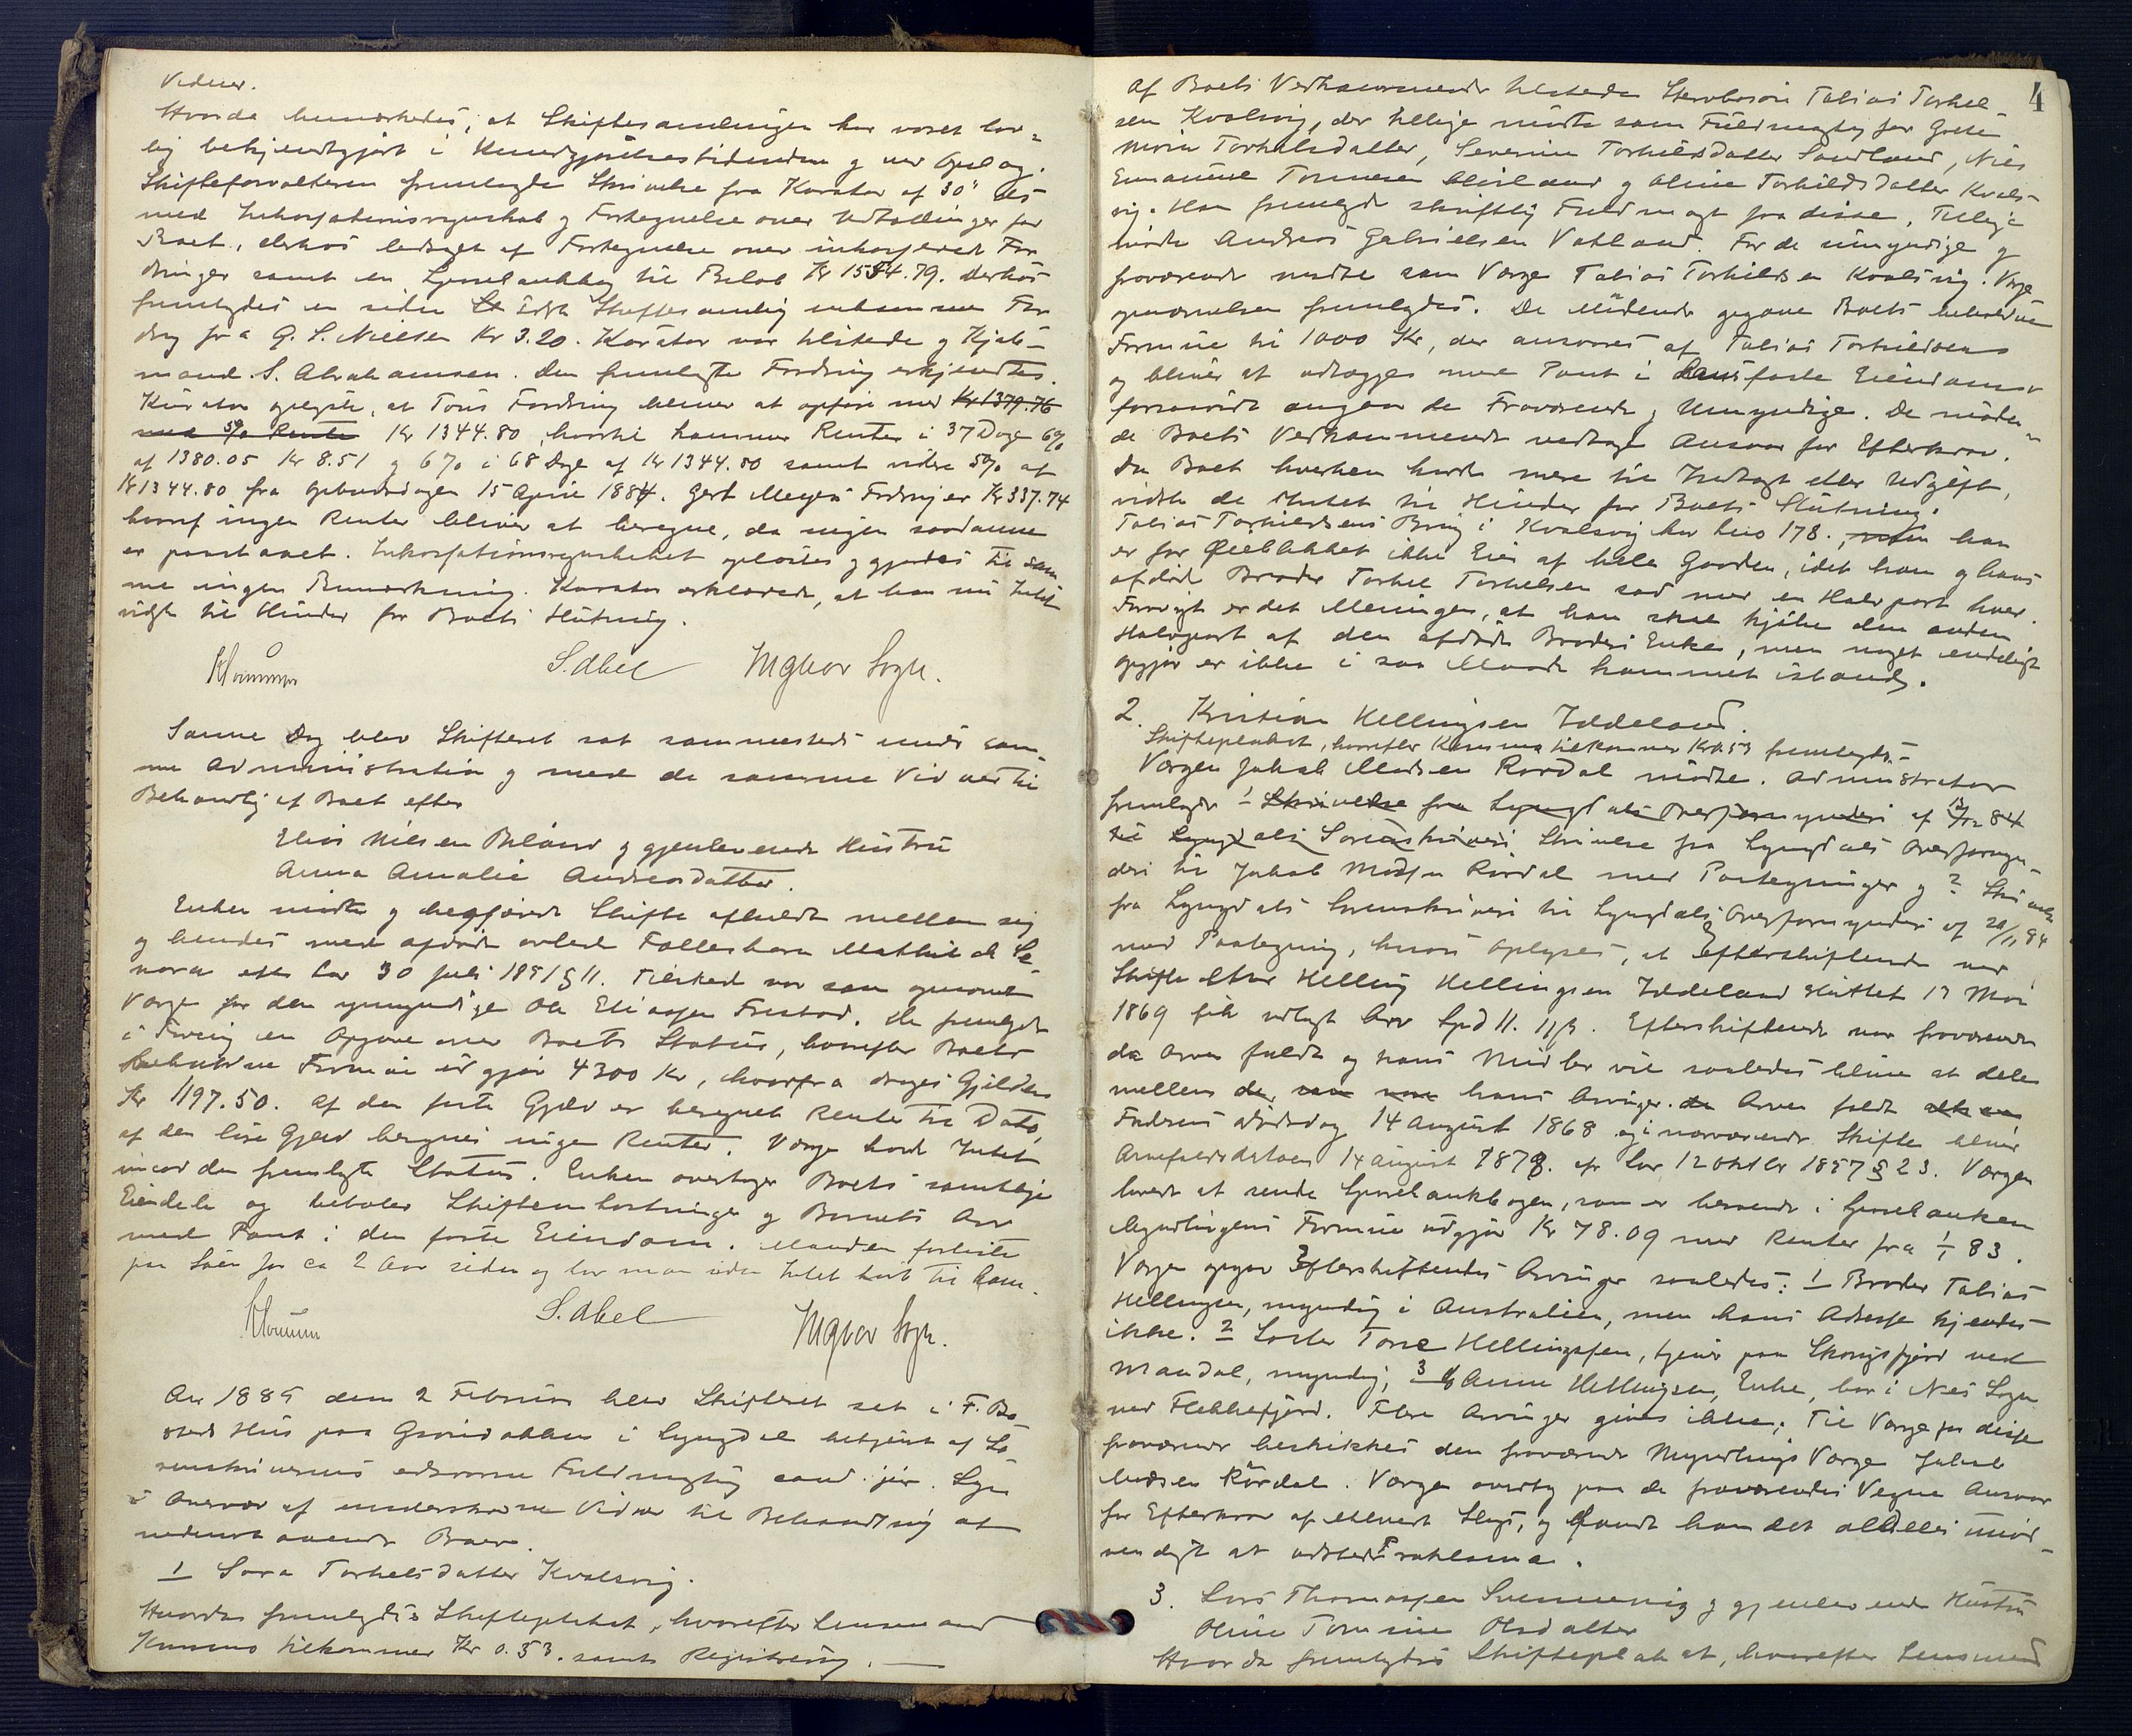 Vidner.
Hvorda bemærkedes, at Skiftesamlingen har været lov-
lig bekjendtgjort i Kundgjørelsestidenden g ved Opslag.
Skifteforvalteren fremlagde Skrivelse fra Kurator af 30te ds
med Inkassationsregnskab g Fortegnelse over Udtællinger for
Boet, derhos ledsaget af Fortegnelse over inkasserede For
dringer samt en Sparebankbog til Beløb Kr 1554.79. Derhos
fremlagdes en siden sidste Skiftesamling indkommen For
drg fra G. S. Nielsen Kr 3.20. Kurator var tilstede g Kjøb-
mand S. Abrahamsen. Den fremlagte Fordring erkjendtes.
Kurator oplyste, at Tous Fordring bliver at opføre med Kr 1379.76
med 5% Rente Kr 1344.80, hvortil kommer Renter i 37 Dage 6%
af 1380.05 Kr 8.51 g 6% i 68 Dage af Kr 1344.80 samt videre 5% af
Kr 1344.80 fra Opbudsdagen 15 April 1884. Gert Meyers Fordring er Kr 337.74
hvoraf ingen Renter bliver at beregne, da ingen saadanne
er paastaaet. Inkassationsregnskabet oplæstes g gjordes til sam
me ingen Bemærkning. Kurator erklærede, at han nu Intet
vidste til Hinder for Boets Slutning.
S. Abel Ingvar Sogn.
Samme Dag blev Skifteret sat sammesteds under sam
me Administration g med de samme Vidner til
Behandlg af Boet efter
Elias Nilsen Biland g gjenlevende Hustru
Anna Amalie Andreasdatter.
Enken mødte g begjærede Skifte afholdt mellem sig
g hendes med afdøde avlede Fællesbarn Mathilde Le-
nora efter Lov 30 Juli 1851 § 11. Tilstede var som opnævnt
Værge for den umyndige Ole Eliassen Frestad. De fremlagde
i Forening en Opgave over Boets Status, hvorefter Boets
beholdne Formue udgjør 4300 Kr, hvorfra drages Gjælden
Kr 1197.50. Af den faste Gjæld er beregnet Renter til Dato,
af den løse Gjæld beregnes ingen Renter. Værgen havde Intet
imod den fremlagte Status. Enken overtager Boets samtlige
Eiendele og betaler Skifteomkostninger g Barnets Arv
med Pant i den faste Eiendom. Manden forliste
paa Søen for ca 2 Aar siden og har man siden Intet hørt til ham.
S. Abel Ingvar Sogn.
Aar 1885 den 2 Februar blev Skifteret sat i F. Bø
ckers Hus paa Grøndokken i Lyngdal betjent af So
renskriverens edsvorne Fuldmægtig cand. jur. Sogn
i Overvær af underskrevne Vidner til Behandling af
nedenstaaende Boer.
1 Sara Torkelsdatter Kvalsvig.
Hvorda fremlagdes Skifteplakat, hvorefter Lensmand
Kummo tilkommer Kr 0.53 samt Registrering.
4
Af Boets Vedkommende tilstede Stervbosøn Tobias Torkel
sen Kvalsvig, der tillige mødte som Fuldmægtig for Grete
Marie Torkelsdatter, Severine Torkildsdatter Sandland, Nils
Emanuel Tønnesen g Aline Torkildsdatter Kvals-
vig. Han fremlagde skriftlig Fuldmagt fra disse. Tillige
mødte Andreas Gabrielsen Vatland. For de umyndige g
fraværende mødte som Værge Tobias Torkildsen Kvalsvig. Værge
opnævnelsen fremlagdes. De Mødende opgave Boets beholdne
Formue til 1000 Kr, der ansvares af Tobias Torkildsen
og bliver at udlægges med Pant i hans faste Eiendom
forsaavidt angaar de Fraværende g Umyndige. De møden-
de Boets Vedkommende vedtage Ansvar for Efterkrav.
Da Boet hverken havde mere til Indtægt eller Udgift,
vidste de Intet til Hinder for Boets Slutning.
Tobias Torkildsens Brug i Kvalsvig har Lno 178., men han
er for Øieblikket ikke Eier af hele Gaarden, idet han g hans
afdøde Broder Torkel Torkelsen sad med en Halvpart hver.
Forøvrigt er det Meningen, at han skal kjøbe den anden
Halvpart af den afdøde Broders Enke, men noget endeligt
opgjør er ikke i saa Maade kommet istand.
2. Kristian Hellingsen Iddeland.
Skifteplakat, hvorefter Kummo tilkommer Kr 0.53 fremlagdes.
Værgen Jakob Madsen Rørdal mødte. Administrator
fremlagde 1 Skrivelse fra Lyngdals Overformynderi af 84
til Lyngdals Sorenskriveri Skrivelse fra Lyngdals Overformyn-
deri til Jakob Madsen Rørdal med Paategninger g 2 Skrivelse
fra Lyngdals Sorenskriveri til Lyngdals Overformynderi af 20/11 84
med Paategning, hvori oplyses, at Efterskiftende ved
Skifte efter Helling Hellingsen Iddeland sluttet 13 Mai
1869 fik udlagt Arv Spd 11. 11 ß. Efterskiftende var fraværende
da Arven faldt og hans Midler vil saaledes blive at dele
mellem de, som var hans Arvinger. da Arven faldt
Faderens Dødsdag 14 August 1868 og i nærværende Skifte bliver
Arvefaldsdatoen 14 August 1878. efr Lov 12 Oktbr 1857 § 23. Værgen
lovede at sende Sparebankbogen, som er beroende i Sparebanken
Myndlingens Formue udgjør Kr 78.09 med Renter fra 1/1 83.
Værgen opgav Efterskiftendes Arvinger saaledes: 1 Broder Tobias
Hellingsen, myndig i Australien, men hans Adresse kjendes
ikke. 2 Søster Tone Hellingsen, tjener paa Skongsfjord ved
Mandal, myndig, 3 Anne Hellingsen, Enke, bor i Nes Sogn
ved Flekkefjord. Flere Arvinger gives ikke. Til Værge for disse
fraværende beskikkes den fraværende Myndlings Værge Jakob
Madsen Rørdal. Værgen overtog paa de fraværendes Vegne Ansvar
for Efterkrav af ethvert Slags, og fandt han det aldeles unød-
vendigt at udstede Proklama.
3. Lars Thomassen g gjenlevende Hustru
Oline Tomine Olsdatter
Hvorda fremlagdes Skifteplakat, hvorefter Lensmand